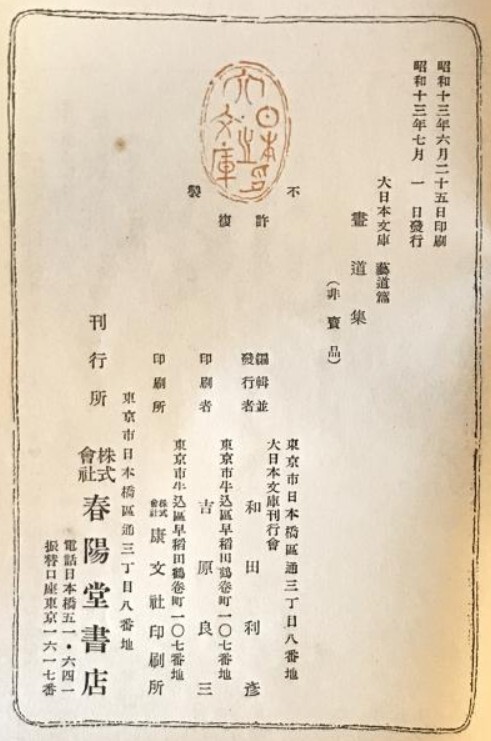 昭和十三年六月二十五日印刷
昭和十三年七月 一 日發行
大日本文庫 藝道篇
畫道集
(非賣品)
不許複製
編輯並發行者
東京市日本橋區通三丁目八番地
大日本文庫刊行會
和田利彥
印刷者
東京市牛込區早稻田鶴卷町一〇七番地
吉原良三
印刷所
東京市牛込區早稻田鶴卷町一〇七番地
株式會社 康文社印刷所
刊行所
東京市日本橋區通三丁目八番地
株式會社 春陽堂書店
電話日本橋五一・六四一
振替口座東京一六一七番